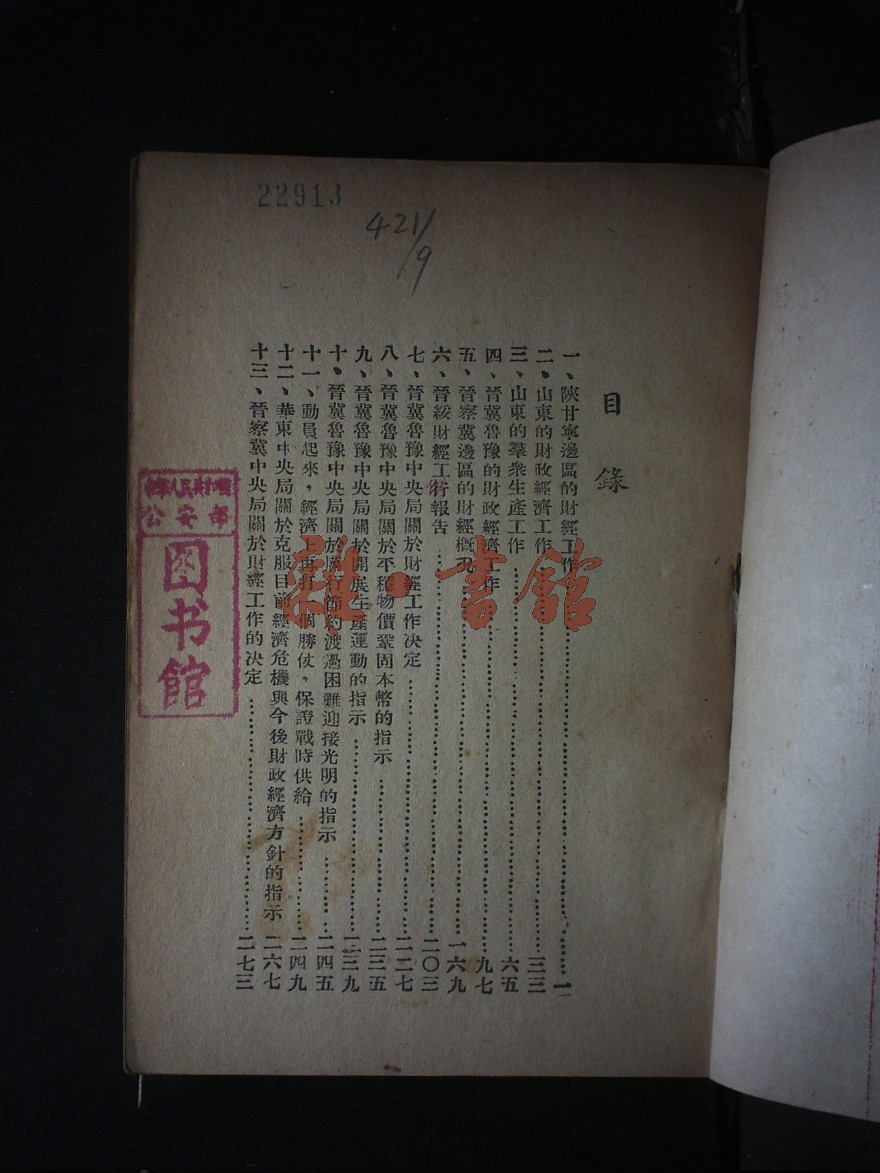 22913
421/9
目錄
一、陝甘寧邊區的財經工作……一
二、山東的財政經濟工作……三三
三、山東的羣衆生產工作……六五
四、晉冀魯豫的財政經濟工作……九七
五、晉察冀邊區的財經概况……一六九
六、晉綏財經工作報告……二〇三
七、晉冀魯豫中央局關於財經工作決定……二二七
八、晉冀魯豫中央局關於平穩物價鞏固本幣的指示……二三五
九、晉冀魯豫中央局關於開展生產運動的指示……二三九
十、晉冀魯豫中央局關於厲行節約渡過困難迎接光明的指示……二四五
十一、動員起來，經濟上再打一個勝仗，保證戰時供給……二四九
十二、華東中央局關於克服目前經濟危機與今後財政經濟方針的指示 二六七
十三、晉察冀中央局關於財經工作的決定……二七三
公安部
图书馆
雜·書館